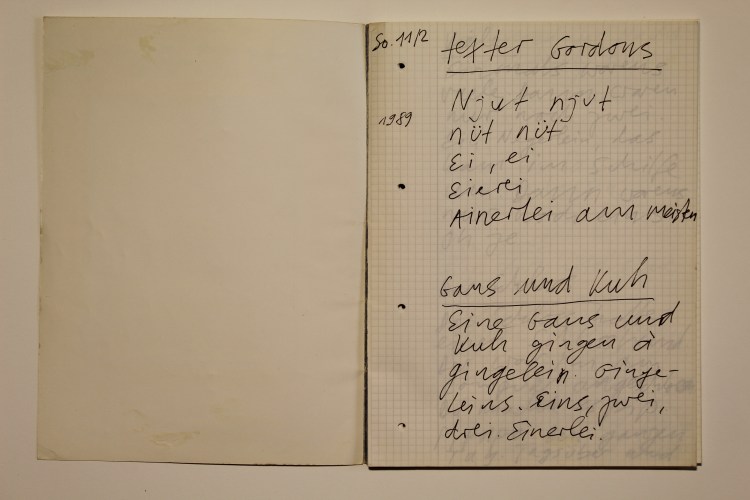 So. 11/2
1989
texter Gordons
Njut njut
nüt nüt
Ei, ei
Eierei
Ainerlei am meisten
Gans und Kuh
Eine Gans und
Kuh gingen à
gingelein. Ginge-
leins. Eins, zwei,
drei. Einerlei.